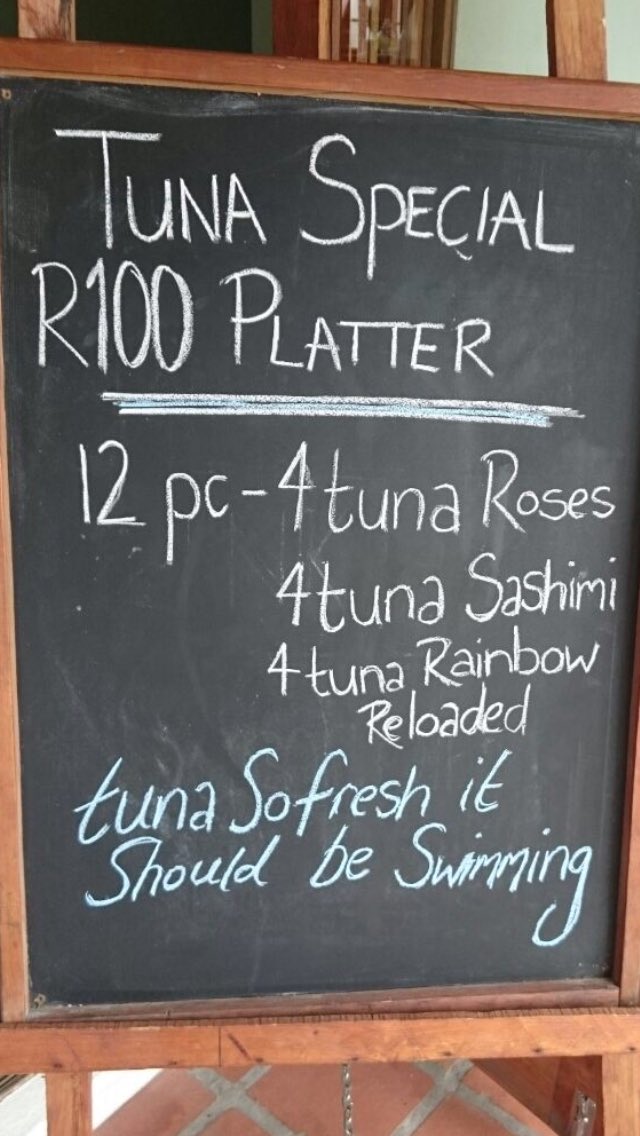 TUNA SPECIAL
R100 PLATTER
12 pc - 4 tuna Roses
4 tuna Sashimi
4 tuna Rainbow
Reloaded
tuna So fresh it
Should be Swimming